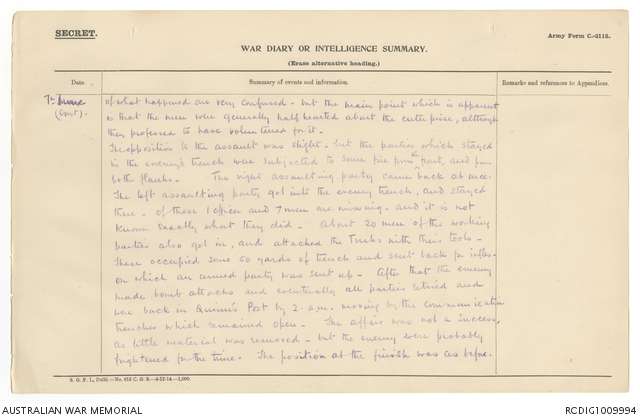 SECRET.
Army Form C.-2118.
WAR DIARY OR INTELLIGENCE SUMMARY.
(Erase alternative heading.)
Date
Summary of events and information.
Remarks and references to Appendices.
7th June of what happened are very confused - but the main point which is apparent
(Cont) - is that the men were generally half hearted about the enterprise, although
they professed to have volunteered for it.
The opposition to the assault was slight - but the parties which stayed
in the enemy's trench was subjected to some fire from front, and from
both flanks. The right assaulting party came back at once.
The left assaulting party got into the enemy trench, and stayed
there - of these 1 officer and 7 men are missing - and it is not
known exactly what they did. About 20 men of the working
parties also got in, and attacked the Turks with their tools -
These occupied some 60 yards of trench and sent back for
on which an armed party was sent up - After that the enemy
made bomb attacks and eventually all parties retired and
were back in Quinn's Post by 2 a.m. moving by the communication
trenches which remained open. The affair was not a success,
as little material was removed - but the enemy were probably
frightened for the time. The position at the finish was as before.
S. G. P. I., Delhi.—No. 615 C. G. S.—4-12-14.—1,000.
AUSTRALIAN WAR MEMORIAL
RCDIG1009994